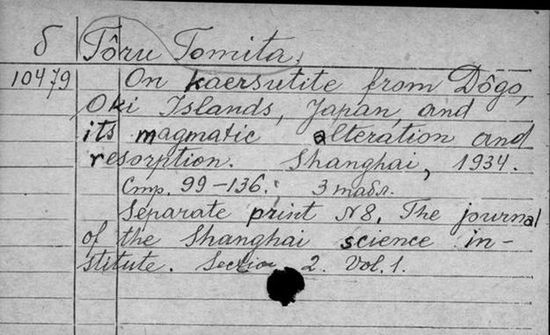 б Tôru Tomita.
10479 On kaersutite from Dôgo,
Oki Islands, Japan, and
its magmatic alteration and
resorption. Shanghai, 1934.
Стр. 99-136. 3 табл.
Separate print N8. The journal
of the Shanghai science in-
stitute. Section 2. Vol. 1.